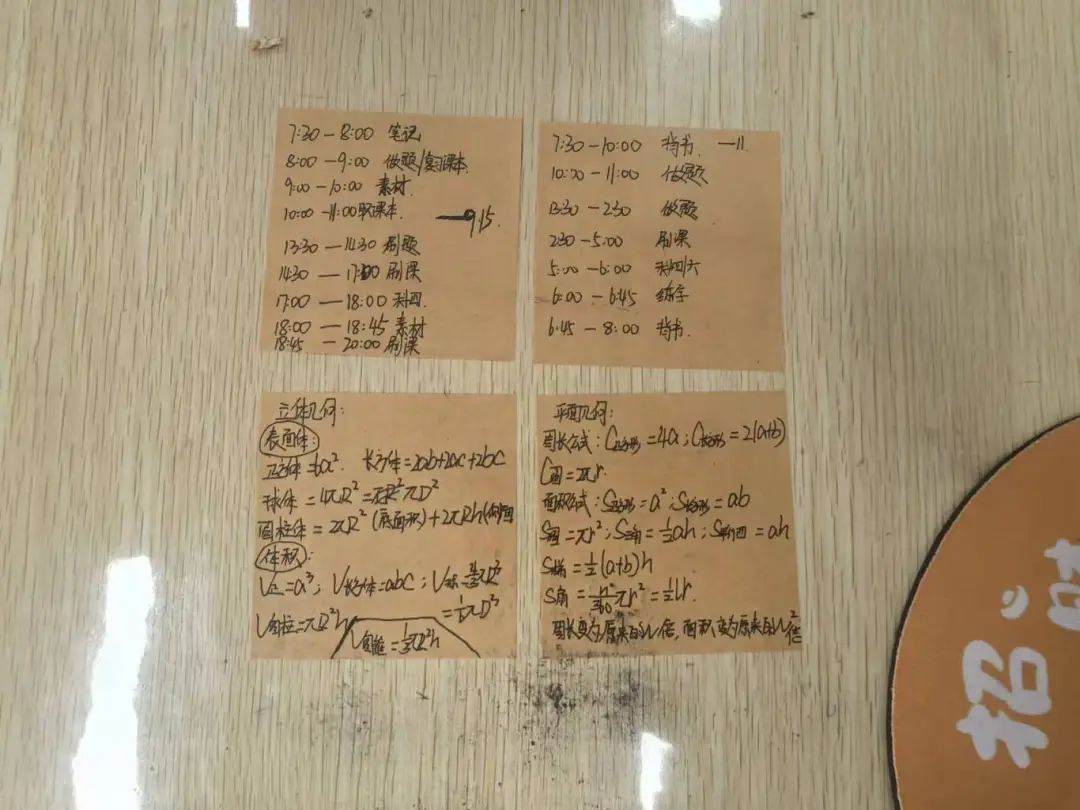 7:30 — 8:00 笔记
8:00 — 9:00 做题/复习课本
9:00 — 10:00 素材.
10:00 — 11:00 课本. — 9.15.
13:30 — 14:30 刷题
14:30 — 17:00 刷课
17:00 — 18:00 科四.
18:00 — 18:45 素材
18:45 — 20:00 刷课
7:30 — 10:00 背书 — 11.
10:00 — 11:00 做题
13:30 — 2:30 做题
2:30 — 5:00 刷课
5:00 — 6:00 科四六
6:00 — 6:45 练字
6:45 — 8:00 背书.
立体几何:
表面体:
正方体=6a². 长方体=2ab+2ac+2bc
球体 = 4πR² = πD²
圆柱体 = 2πR²(底面积)+2πRh(侧面
体积:
V正=a³; V长方体=abc; V球=4/3πR³
=1/6πD³
V圆柱=πR²h
V圆锥=1/3πR²h
平面几何:
周长公式: C正方形=4a; C长方形=2(a+b)
C圆=2πr.
面积公式: S正方形=a²; S长方形=ab
S圆=πr²; S三角=1/2ah; S平行四=ah
S梯=1/2(a+b)h
S扇=n°/360πr²=1/2Lr.
周长变为原来的N倍,面积变为原来的N²倍
招
财